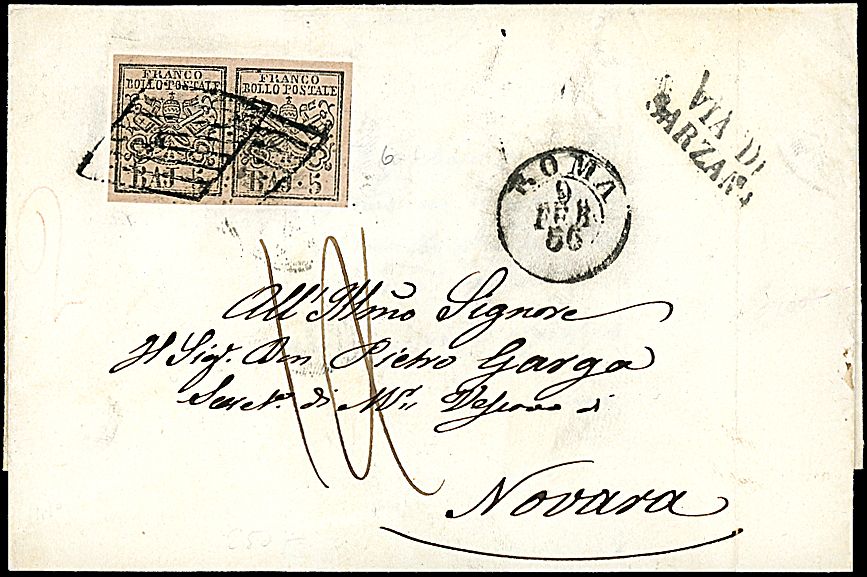 FRANCO
BOLLO POSTALE
BAJ. 5
FRANCO
BOLLO POSTALE
BAJ. 5
VIA DI
SARZANA
6
ROMA
9
FEB
56
All' Illmo Signore
Il Sig. Don Pietro Garga
Segret. di Mr Vescovo di
Novara